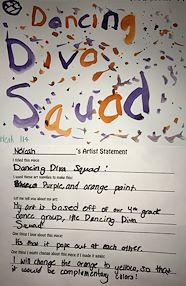 Dancing
Diva
Squad
114
's Artist Statement
I titled this piece:
Dancing Diva Squad:
I used these art supplies to make this:
Purple and orange paint
Let me tell you about my art:
My art is based off of our 4th grade
dance group, the Dancing Diva
Squad
One thing I love about this piece:
Its that it pops out at each other.
One thing I might change about this piece if I made it again:
I will change the orange to yellow, so that
it would be complementary colors!